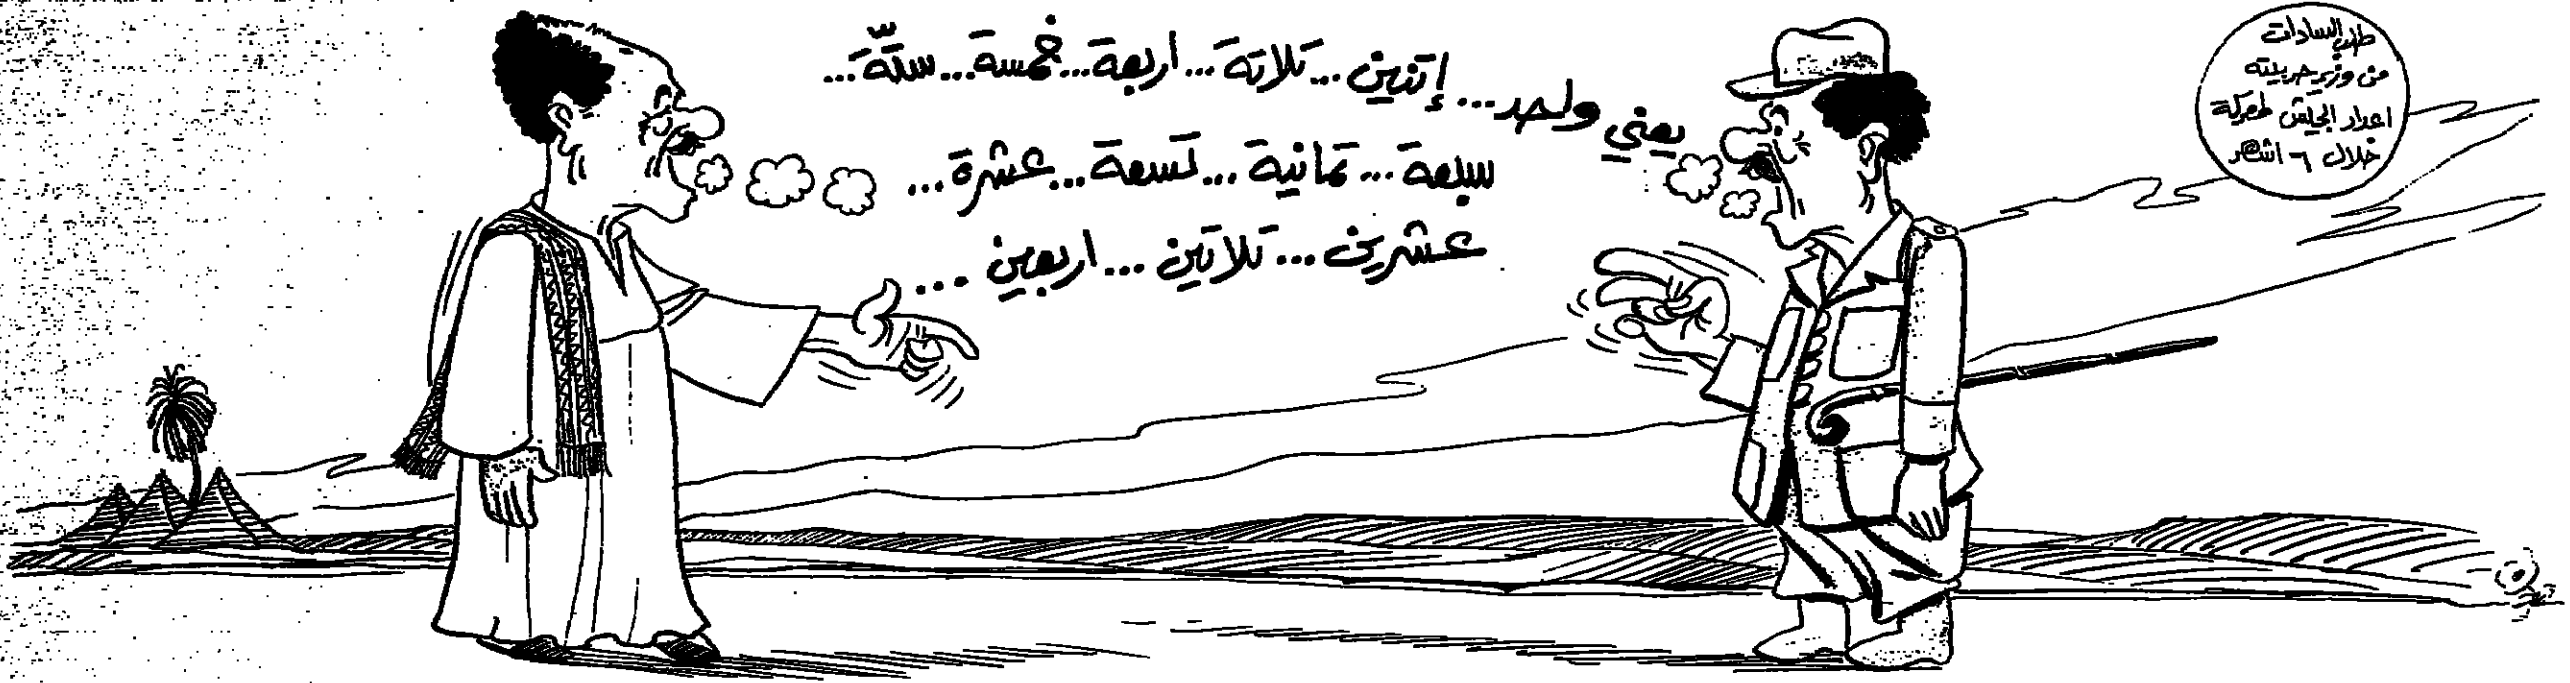 طلب السادات
من وزير حربيته
اعداد الجيش لمعركة
خلال ٦ اشهر
يعني واحد... إتنين... تلاتة... اربعة... خمسة... ستّة...
سبعة... تمانية... تسعة... عشرة...
عشرين... تلاتين... اربعين...